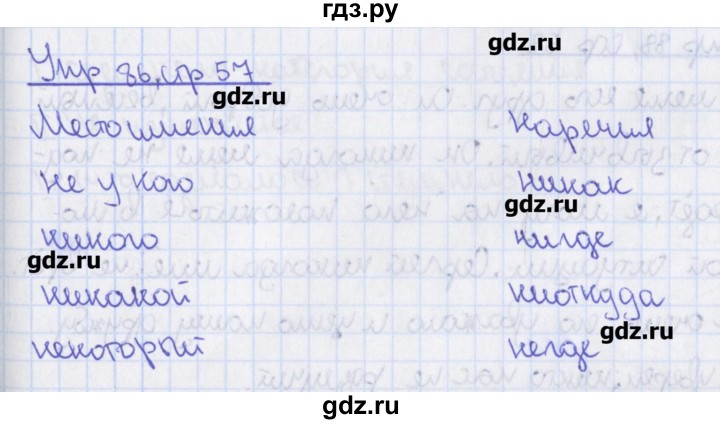 гдз.ру
gdz.ru
Упр 86, стр 57
gdz.ru
Местоимения наречия
не у кого никак
gdz.ru
никого нигде
gdz.ru
никакой ниоткуда
gdz.ru
некоторый негде
gdz.ru